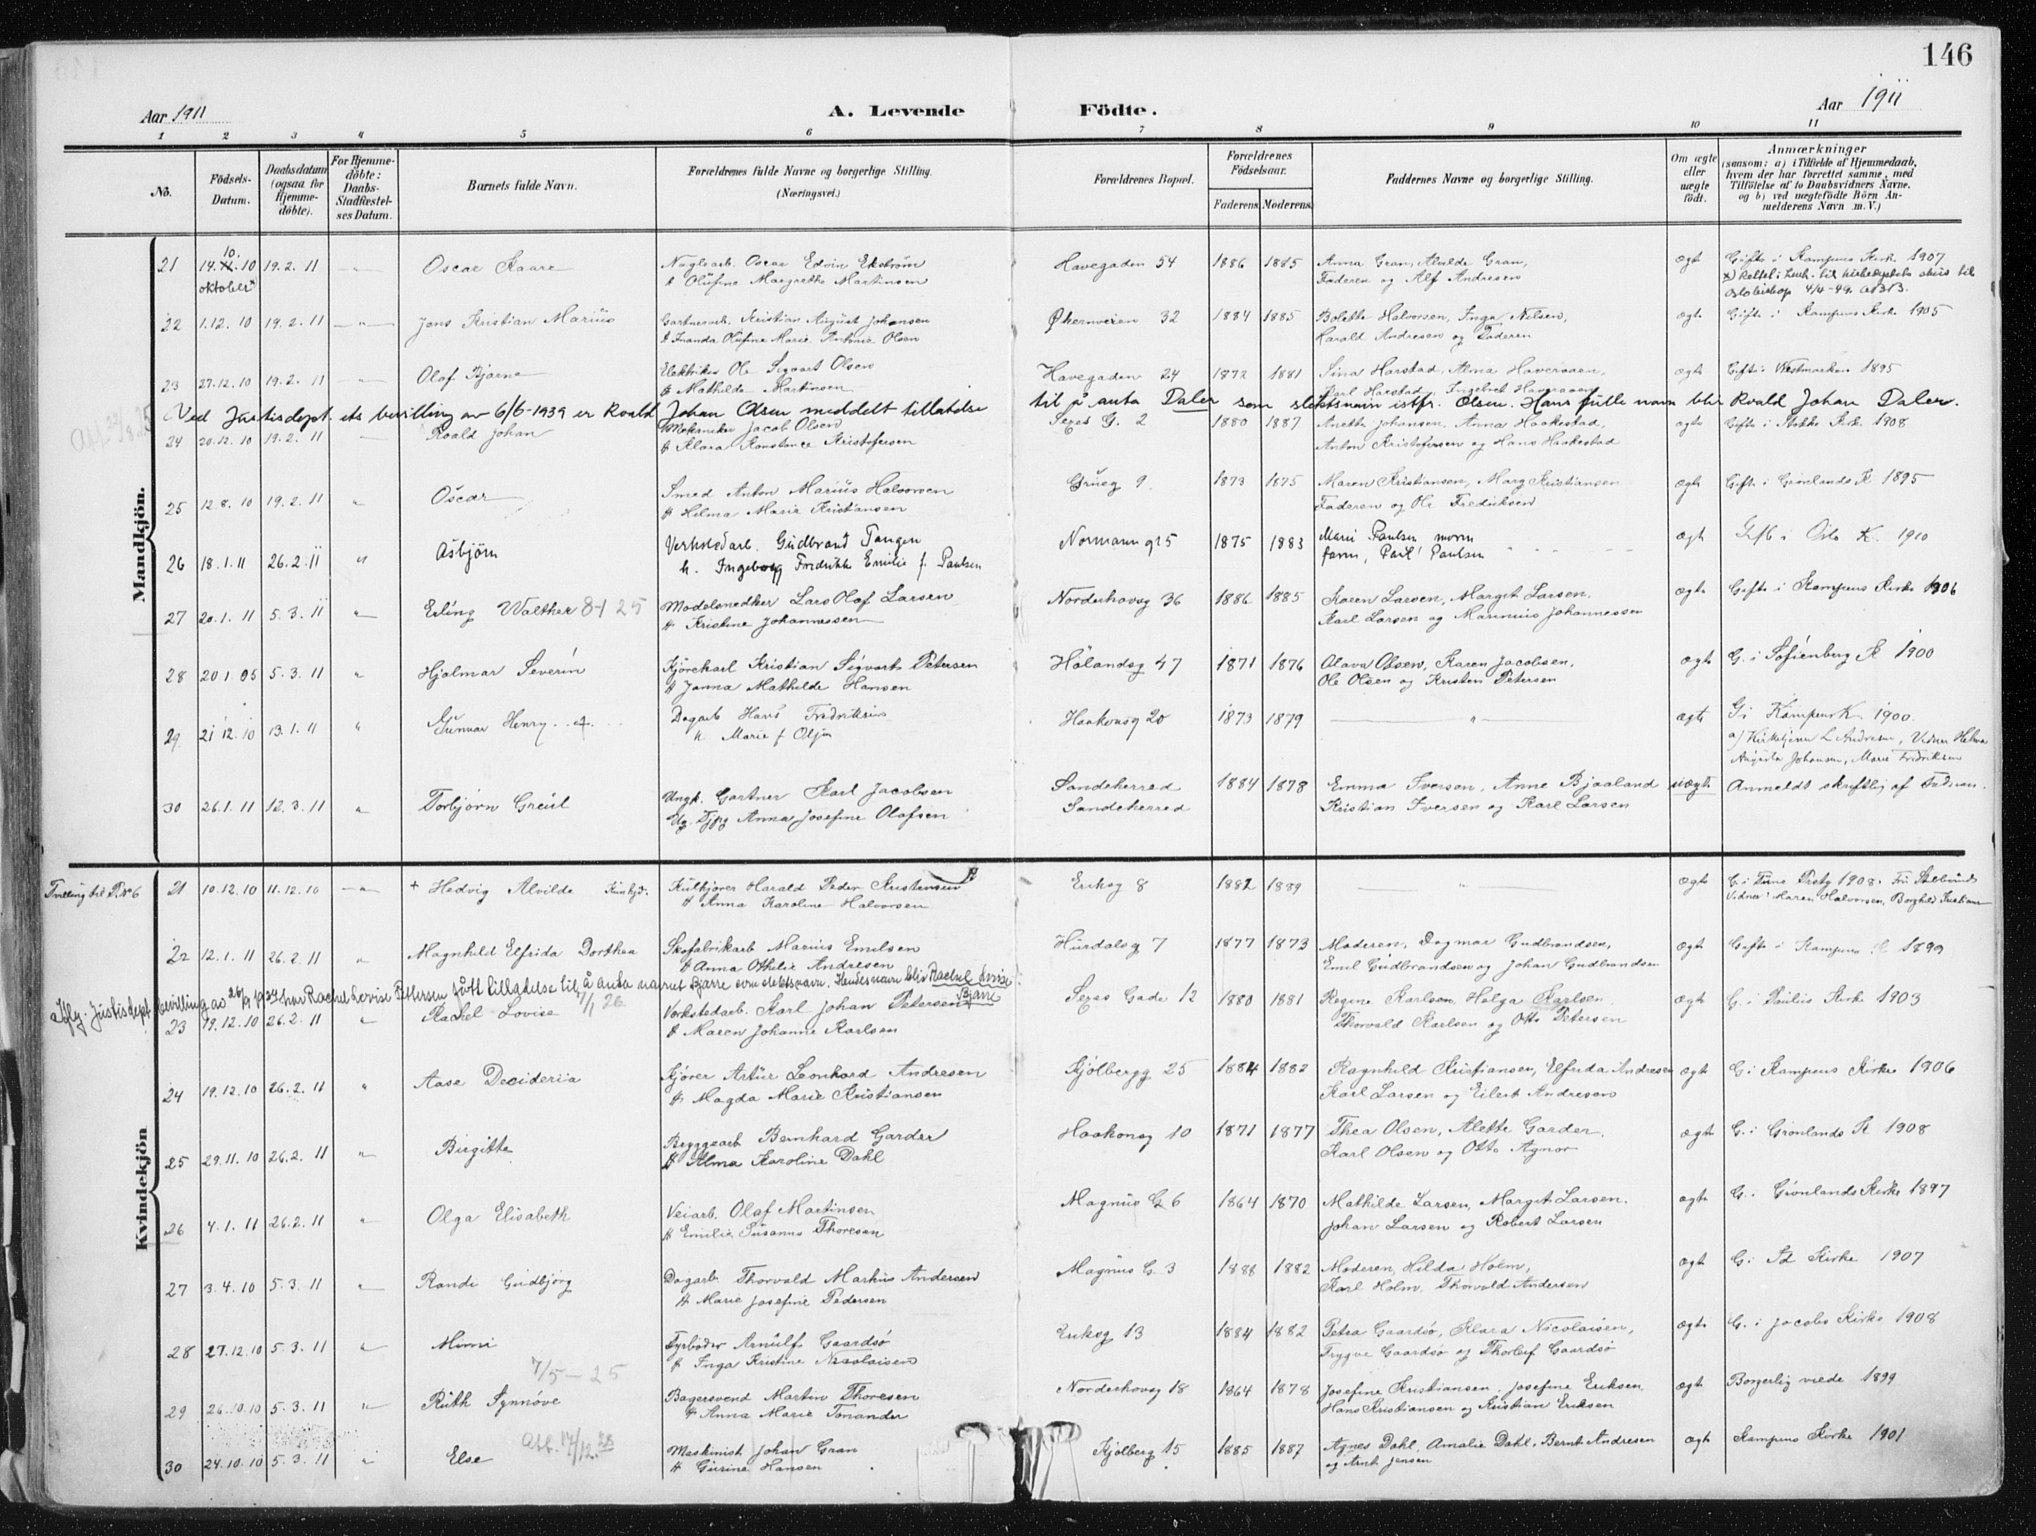 146
Aar 1911 A. Levende Födte. Aar 1911
1 2 3 4 5 6 7 8 9 10 11
No. Födsels-Datum. Daabsdatum (ogsaa for Hjemme-döbte). For Hjemme-döbte: Daabs-Stadfæstel-ses Datum. Barnets fulde Navn. Forældrenes fulde Navne og borgerlige Stilling. (Næringsvei.) Forældrenes Bopæl. Forældrenes Födselsaar. Faderens Moderens Faddernes Navne og borgerlige Stilling. Om ægte eller uægte födt. Anmærkninger (saasom: a) i Tilfælde af Hjemmedaab, hvem der har forrettet samme, med Tilföielse af to Daabsvidners Navne. og b) ved uægtefödte Börn An-melderens Navn m. V.)
Mandkjön.
21 14.10.10 19.2.11 Oscar Kaare Naglearb. Oscar Edvin Ekström Havegaden 54 1886 1885 Anna Gran, Alvilde Gran, ægt Gifte i Kampens Kirke 1907
oktober H Olufine Margrethe Martinsen Faderen og Alf Andresen
22 1.12.10 19.2.11 Jens Kristian Marius Gartnerarb. Kristian August Johansen Økernveien 32 1884 1885 Bolette Halvorsen, Inga Nilsen, ægt Gifte i Kampens Kirke 1905
Olufine Marie Antonie Olsen Harald Andresen og Faderen
23 27.12.10 19.2.11 Olaf Bjarne Elektriker Ole Sigvart Olsen Havegaden 24 1872 1881 Sina Harstad, Alma Haveraaen, ægt Gifte i Westmarken 1895
H Mathilde Martinsen Karl Harstad, Ingebret Haveraaen
Ved Justisdept. ets bevilling av 6/6-1939 er Roald Johan Olsen meddelt tillatelse til å anta Daler som slektsnavn istfr. Olsen. Hans fulle navn blir Roald Johan Daler.
24 20.12.10 19.2.11 Roald Johan Mekaniker Jacob Olsen Seres G. 2 1880 1887 Anette Johansen, Anna Haakestad, ægt Gifte i Kirke 1908
H Klara Konstance Kristofersen Anton Kristofersen og Hans Haakestad
25 12.8.10 19.2.11 Oscar Smed Anton Marius Halvorsen Grüeg 9. 1873 1875 Maren Kristiansen, Marg Kristiansen ægt Gifte i Grønlands K 1895
H Hilma Marie Kristiansen Faderen og Ole Fredriksen
26 18.1.11 26.2.11 Asbjörn Verkstedarb. Gudbrand Tangen Normanng 25 1875 1883 Marie Paulsen morm ægt Gift i Oslo K. 1910
h. Ingeborg Fredrikke Emilie f. Paulsen farm, Paul Paulsen
27 20.1.11 5.3.11 Erling Walther 8-1 25 Modelsnedker Lars Olaf Larsen Norderhovsg 36 1886 1885 Karen Larsen, Margit Larsen, ægt Gifte i Kampens Kirke 1906
H Kristine Johannessen Karl Larsen og Marinius Johannessen
28 20.1.05 5.3.11 Hjalmar Severin Kjörekarl Kristian Sigvart Petersen Hölandsg 47 1871 1876 Olava Olsen, Karen Jacobsen, ægt G. i Sofienberg K 1900
H Janna Mathilde Hansen Ole Olsen og Kristen Petersen
29 21.12.10 13.1.11 Gunvar Henry Dagarb Hans Fredriksen Haakonsg 20 1873 1879 ægte G i Kampens K 1900.
h Marie f Olsen a) L Andresen, Vidner Helma
Augusta Johansen, Marie Fredriksen
30 26.1.11 12.3.11 Torbjørn Greul Ungk. Gartner Karl Jacobsen Sandeherred 1884 1878 Emma Iversen, Anne Bjaaland uægte Anmeldt skriftlig af
Ug. Tjpg Anna Josefine Olafsen Sandeherred Kristian Iversen og Karl Larsen
Kvindekjön
Tvilling til No 6 21 10.12.10 11.12.10 + Hedvig Alvilde Kulkjører Harald Peder Kristensen Eriksg 8 1882 1889 ægt G. i Tune Prstg 1908.
H Anna Karoline Halvorsen Vidner: Maren Halvorsen,
22 12.1.11 26.2.11 Magnhild Elfrida Dorthea Skofabrikarb Marius Emilsen Hurdalsg 7 1877 1873 Moderen, Dagmar Gudbrandsen, ægt Gifte i Kampens K 1899
H Anna Othilie Andresen Emil Gudbrandsen og Johan Gudbrandsen
Iflg. Justisdept bevilling av 26/9 1934 har Rachel Lovise Pettersen fått tilladelse til å anta navnet Bjarre som slektsnavn. Hendes navn blir Rachel Lovise Bjarre
23 19.12.10 26.2.11 Rachel Lovise 7/1 26 Verkstedarb. Karl Johan Petersen Seres Gade 12 1880 1881 Regine Karlsen, Helga Karlsen ægt G. i Paulus Kirke 1903
H Maren Johanne Karlsen Thorvald Karlsen og Otto Petersen
24 19.12.10 26.2.11 Aase Decideria Kjörer Artur Leonhard Andresen Kjölbergg 25 1884 1882 Ragnhild Kristiansen, Elfrida Andresen ægt G. i Kampens Kirke 1906
H Magda Marie Kristiansen Karl Larsen og Eilert Andresen
25 29.11.10 26.2.11 Birgitte Bryggearb Bernhard Garder Haakonsg 10 1871 1877 Thea Olsen, Alette Garder, ægt G. i Grönlands K 1908
H Alma Karoline Dahl Karl Olsen og Otto Agnor
26 4.1.11 26.2.11 Olga Elisabeth Veiarb. Olaf Martinsen Magnus G 6 1864 1870 Mathilde Larsen, Margit Larsen. ægt G. i Grönlands Kirke 1897
H Emilie Susanna Thoresen Johan Larsen og Robert Larsen
27 3.4.10 5.3.11 Randi Gudbjörg Dagarb. Thorvald Markus Andersen Magnus G. 3 1888 1882 Moderen, Hilda Holm, ægt G. i Kirke 1907
H Marie Josefine Pedersen Karl Holm, Thorvald Andersen
28 27.12.10 5.3.11 Mimi Fyrbøder Arnulf Gaardsö Eriksg 13 1884 1882 Petra Gaardsö, Klara Nicolaisen, ægt G. i Jacobs Kirke 1908
H Inga Kristine Nicolaisen Trygve Gaardsö og Thorleif Gaardsö
7/5-25
29 26.10.10 5.3.11 Ruth Synnöve Bagersvend Martin Thoresen Norderhovsg 18 1864 1878 Josefine Kristiansen, Josefine Eriksen ægt Borgerlig viede 1899
H Anna Marie Tonander Hans Kristiansen og Kristian Eriksen
30 24.10.10 5.3.11 Else Maskinist Johan Gran Kjölberg 15 1885 1887 Agnes Dahl, Amalie Dahl, Bernt Andresen ægt Kampens Kirke 1901
H Gurine Hansen og Arnt Jensen